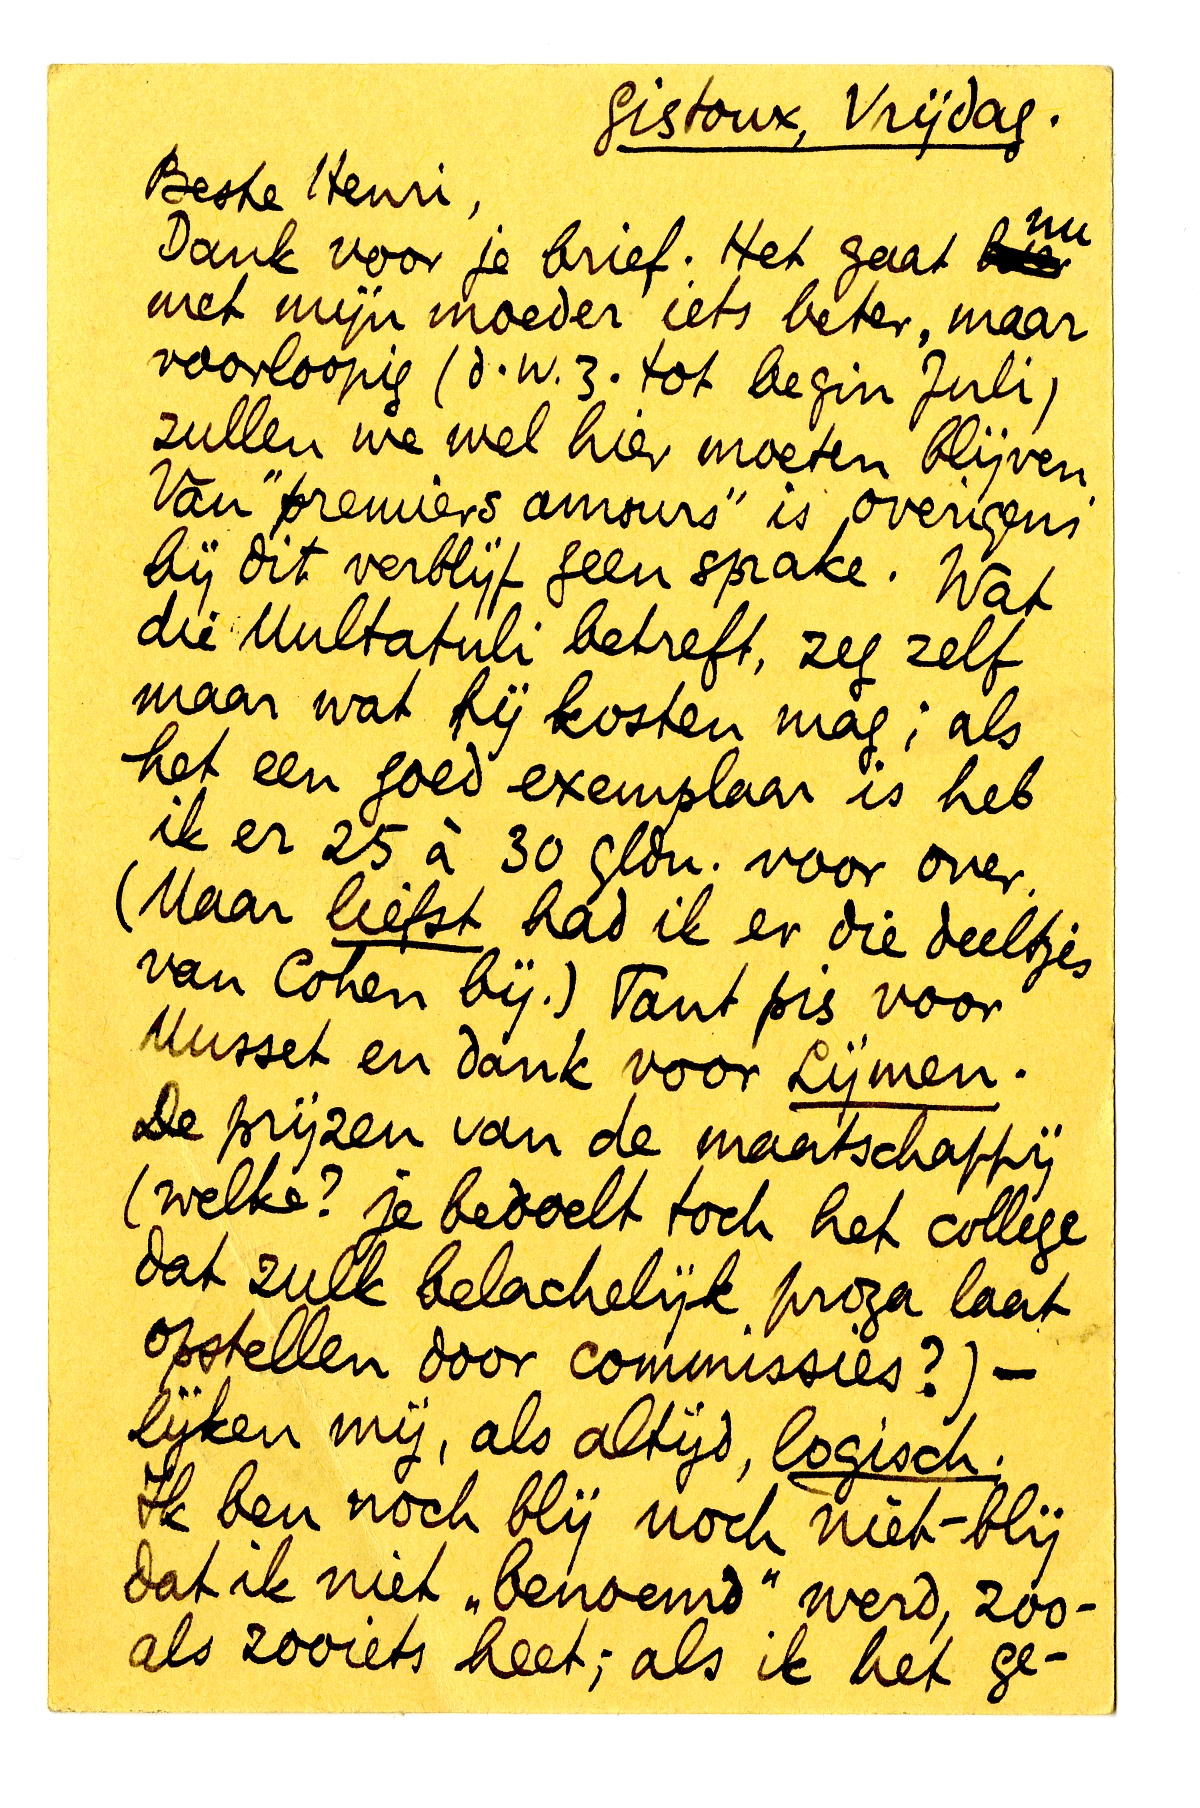 Gistoux, Vrijdag.
Beste Henri,
Dank voor je brief. Het gaat nu
met mijn moeder iets beter, maar
voorloopig (d.w.z. tot begin Juli)
zullen we wel hier moeten blijven.
Van "premiers amours" is overigens
bij dit verblijf geen sprake. Wat
die Multatuli betreft, zeg zelf
maar wat hij kosten mag; als
het een goed exemplaar is heb
ik er 25 à 30 gldn. voor over.
(Maar liefst had ik er die deeltjes
van Cohen bij.) Tant pis voor
Musset en dank voor Lijmen.
De prijzen van de maatschappij
(welke? je bedoelt toch het college
dat zulk belachelijk proza laat
opstellen door commissies?) —
lijken mij, als altijd, logisch.
Ik ben noch blij noch niet-blij
dat ik niet „benoemd" werd, zoo-
als zooiets heet; als ik het ge-